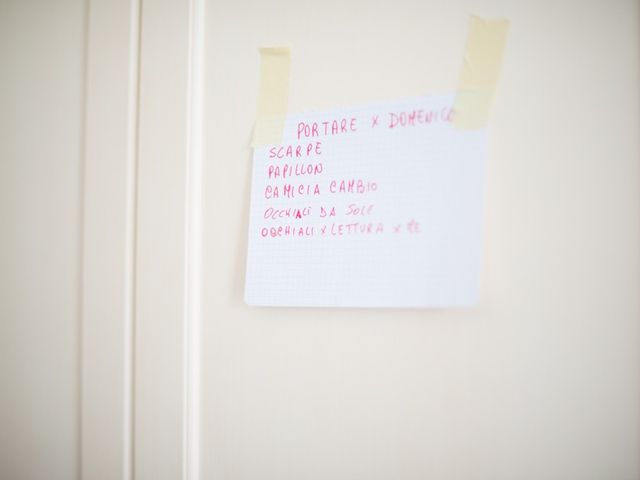 PORTARE x DOMENICO
SCARPE
PAPILLON
CAMICIA CAMBIO
OCCHIALI DA SOLE
OCCHIALI x LETTURA x